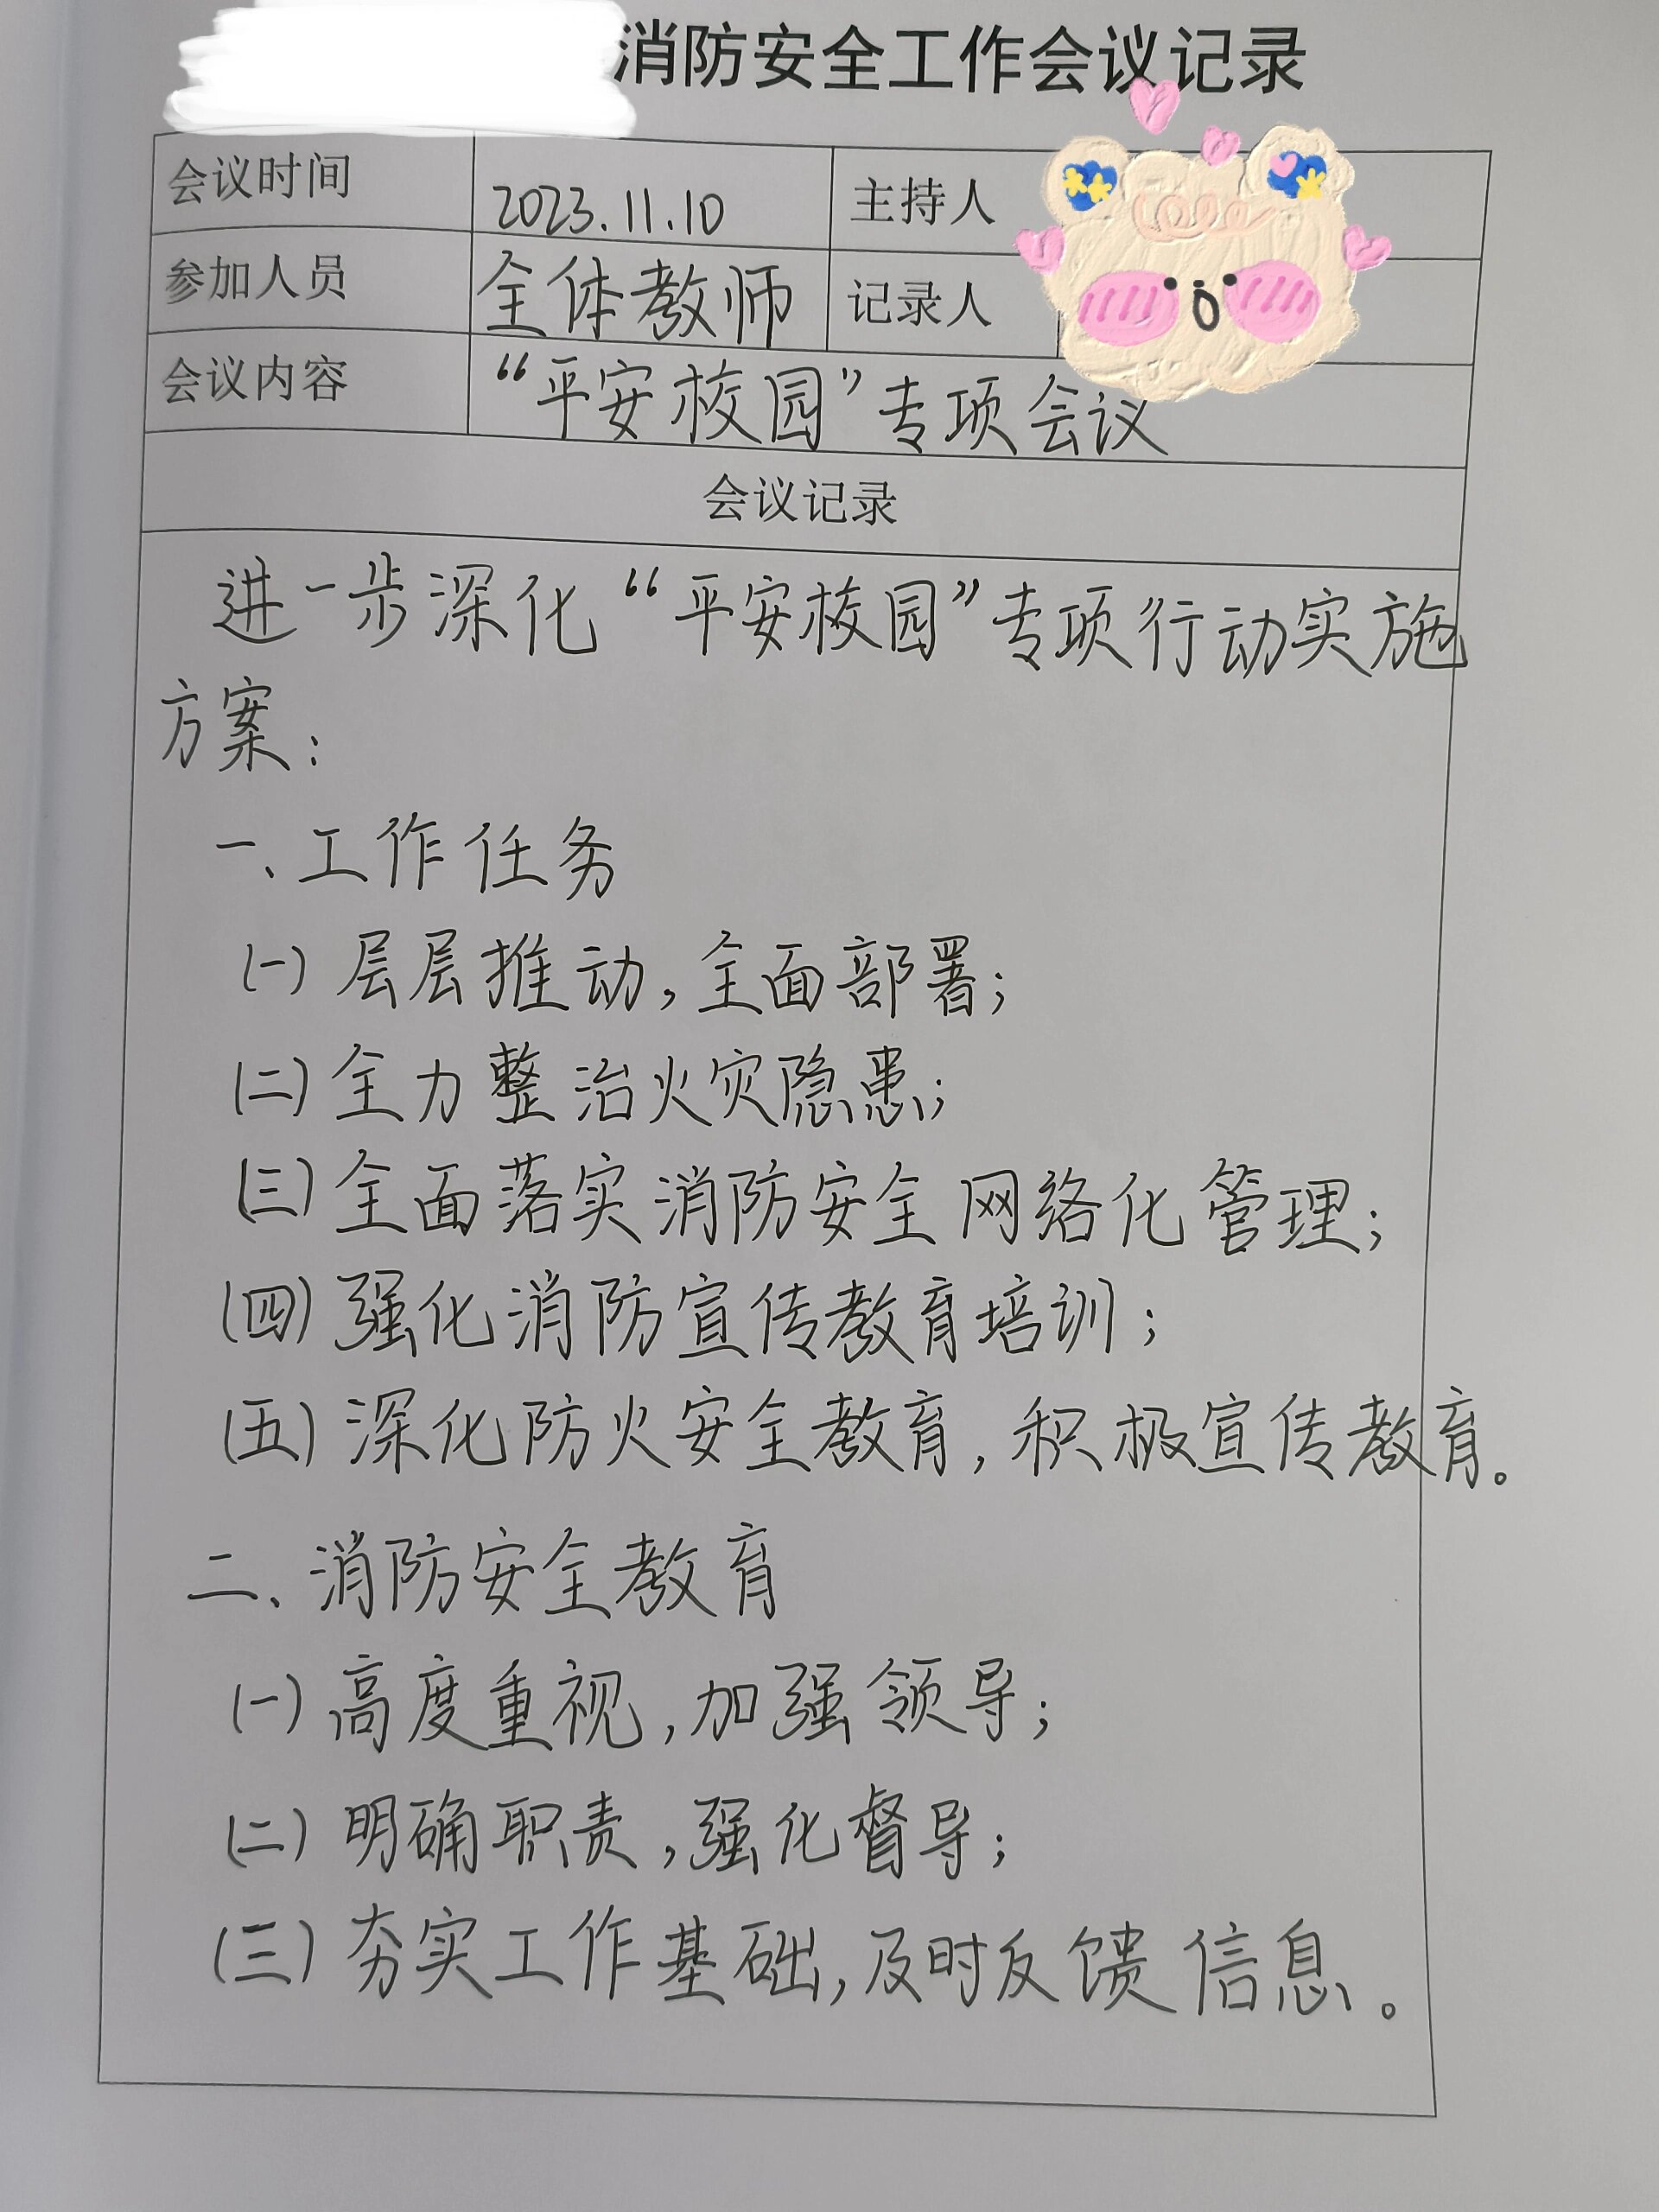 消防安全工作会议记录
会议时间 2023.11.10 主持人
参加人员 全体教师 记录人
会议内容 “平安校园”专项会议
会议记录
进一步深化“平安校园”专项行动实施
方案：
一、工作任务
(一) 层层推动，全面部署；
(二) 全力整治火灾隐患；
(三) 全面落实消防安全网络化管理；
(四) 强化消防宣传教育培训；
(五) 深化防火安全教育，积极宣传教育。
二、消防安全教育
(一) 高度重视，加强领导；
(二) 明确职责，强化督导；
(三) 夯实工作基础，及时反馈信息。